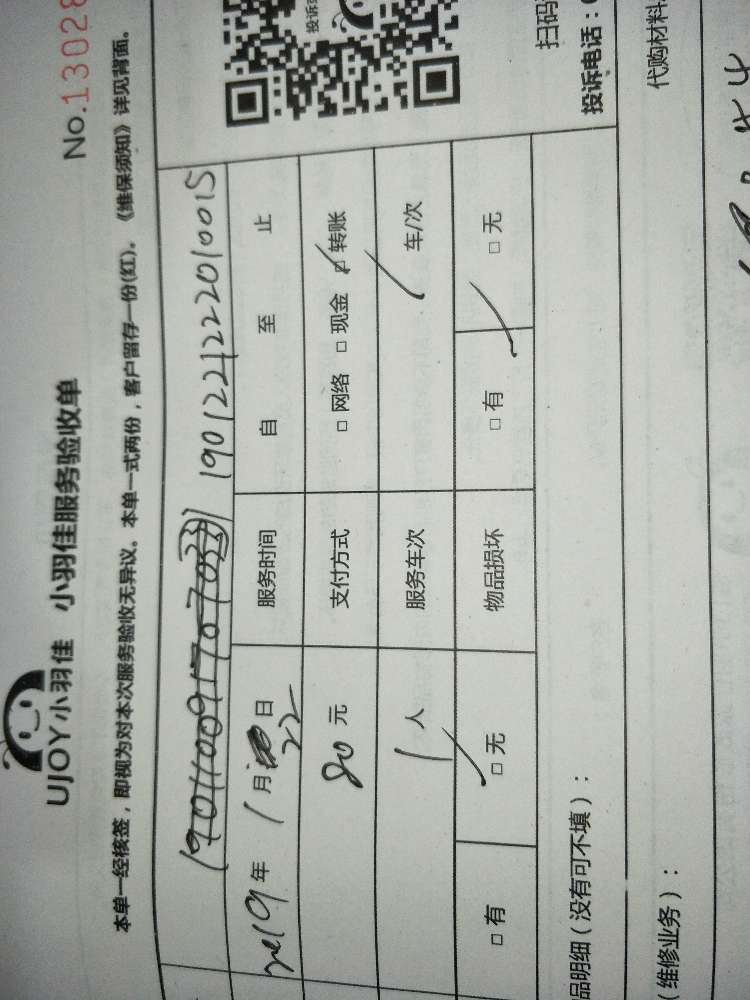 UJOY小羽佳 小羽佳服务验收单
No.13028
本单一经核签，即视为对本次服务验收无异议。本单一式两份，客户留存一份(红)。《维保须知》详见背面。
190122122201015
2019年1月22日 服务时间 自 至 止
80元 支付方式 □网络 □现金 ☑转账
1人 服务车次 / 车/次
□有 □无 物品损坏 □有 □无
品明细（没有可不填）：
维修业务）：
扫码
投诉电话：
代购材料